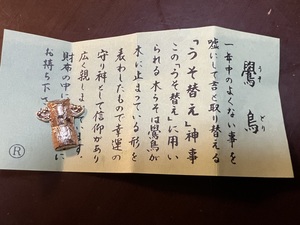 鷽鳥
うそ どり
一年中のよくない事を
嘘にして吉と取り替える
「うそ替え」神事
この「うそ替え」に用い
られる木うそは鷽鳥が
木に止まっている形を
表わしたもので幸運の
守り神として信仰があり
広く親し
財布の中に
お持ち下さ
Ⓡ